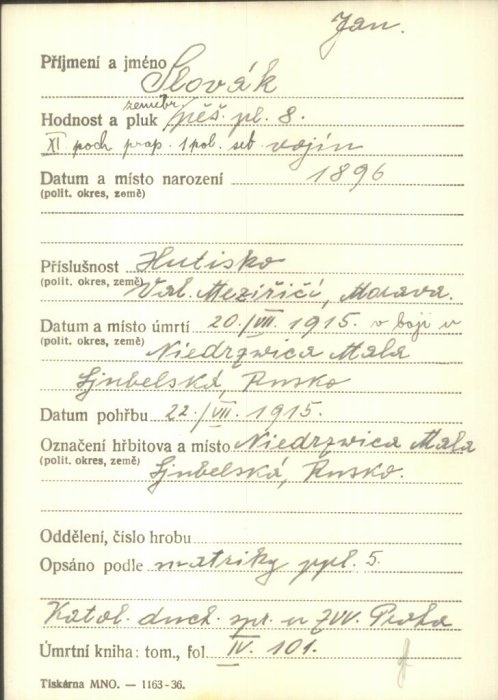 Jan.
Příjmení a jméno Slovák
zeměbr.
Hodnost a pluk pěš. pl. 8.
XI poch prap. 1 pol. set. vojín
Datum a místo narození 1896
(polit. okres, země)
Příslušnost Hutisko
(polit. okres, země) Val. Meziříčí, Morava.
Datum a místo úmrtí 20./VII. 1915. v boji u
(polit. okres, země) Niedrzwica Mala
Ljubelská, Rusko
Datum pohřbu 22./VII. 1915.
Označení hřbitova a místo Niedrzwica Mala
(polit. okres, země) Ljubelská, Rusko.
Oddělení, číslo hrobu
Opsáno podle matriky ppl. 5.
Katol. duch. spr. u ZVV. Praha
Úmrtní kniha: tom., fol. IV. 101.
Tiskárna MNO. — 1163-36.